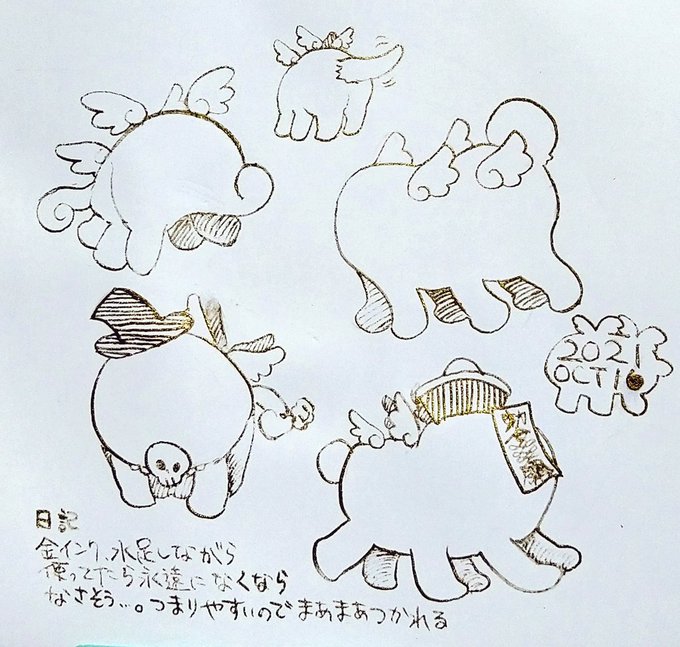 2021
OCT 16
日記
金インク、水足しながら
使ってたら永遠になくなら
なさそう…。つまりやすいのでまあまあつかれる